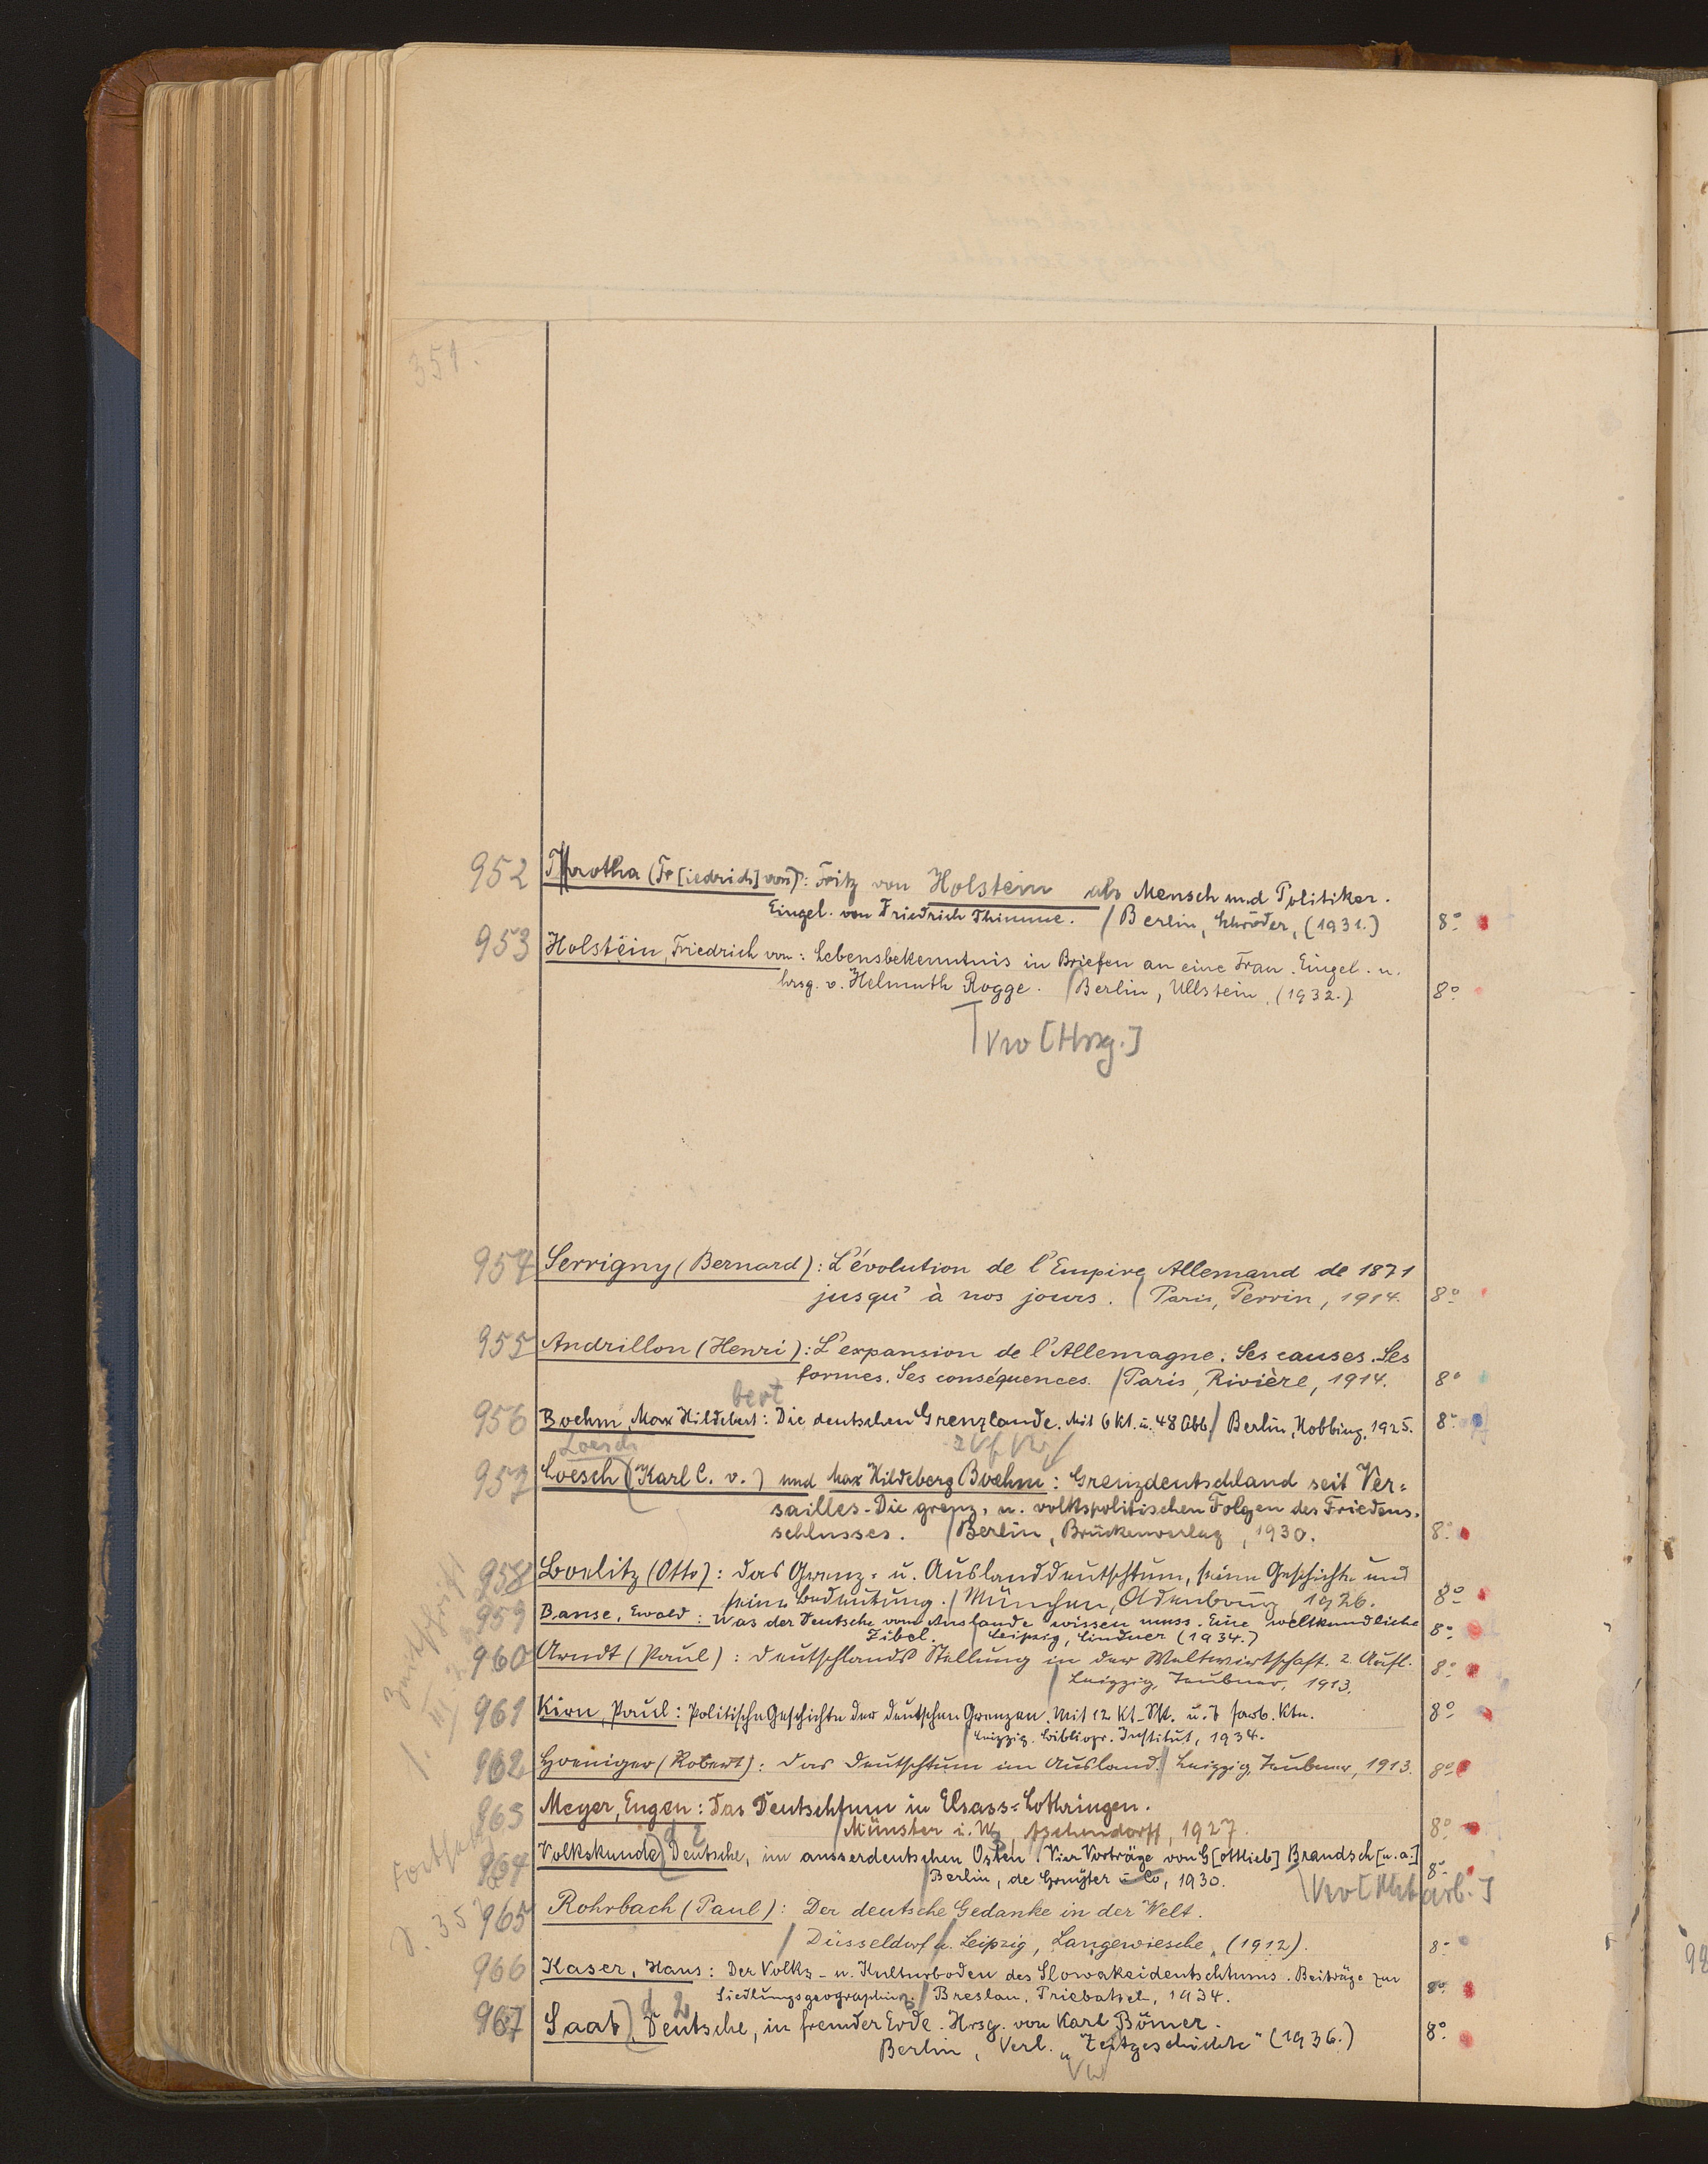 351.
952 Trotha (Fr[iedrich] von): Fritz von Holstein als Mensch und Politiker.
Eingel. von Friedrich Thimme. / Berlin, Schröder, (1931.) 8°
953 Holstein, Friedrich von: Lebensbekenntnis in Briefen an eine Frau. Eingel. u.
hrsg. v. Helmuth Rogge. / Berlin, Ullstein, (1932.) 8°
Vw [Hrsg.]
954 Serrigny (Bernard): L'évolution de l'Empire Allemand de 1871
jusqu'à nos jours. / Paris, Perrin, 1914. 8°
955 Andrillon (Henri): L'expansion de l'Allemagne. Ses causes. Ses
formes. Ses conséquences. / Paris, Rivière, 1914. 8°
bert
956 Boehm, Max Hildebert: Die deutschen Grenzlande. Mit 6 Kt. u. 48 Abb / Berlin, Hobbing, 1925. 8°
Loesch
957 Loesch (Karl C. v.) und Max Hildeberg Boehm: Grenzdeutschland seit Ver=
sailles. Die grenz- u. volkspolitischen Folgen des Friedens-
schlusses. / Berlin, Brückenverlag, 1930. 8°
958 Boelitz (Otto): Das Grenz= u. Auslanddeutschtum, seine Geschichte und
seine Bedeutung. / München, Oldenbourg, 1926. 8°
959 Banse, Ewald: Was der Deutsche vom Auslande wissen muss. Eine weltkundliche
Fibel. / Leipzig, Lindner (1934.) 8°
960 Arndt (Paul): Deutschlands Stellung in der Weltwirtschaft. 2. Aufl.
/ Leipzig, Teubner, 1913. 8°
961 Kirn, Paul: Politische Geschichte der deutschen Grenzen. Mit 12 Kt.-Sk. u. 7 farb. Ktn.
/ Leipzig. Bibliogr. Institut, 1934. 8°
962 Hoeniger (Robert): Das Deutschtum im Ausland. / Leipzig, Teubner, 1913. 8°
963 Meyer, Eugen: Das Deutschtum in Elsass=Lothringen.
/ Münster i. W., Aschendorff, 1927. 8°
964 Volkskunde, Deutsche, im ausserdeutschen Osten / Vier Vorträge von G[ottlieb] Brandsch [u. a.]
/ Berlin, de Gruyter u Co, 1930. 8°
Vw [Mitarb.]
965 Rohrbach (Paul): Der deutsche Gedanke in der Welt.
/ Düsseldorf u. Leipzig, Langewiesche, (1912). 8°
966 Kaser, Hans: Der Volks- u. Kulturboden des Slowakeideutschtums. Beiträge zur
Siedlungsgeographie. / Breslau, Priebatsch, 1934. 8°
967 Saat, Deutsche, in fremder Erde. Hrsg. von Karl Bömer.
Berlin, Verl. „Zeitgeschichte" (1936.) 8°
Vw